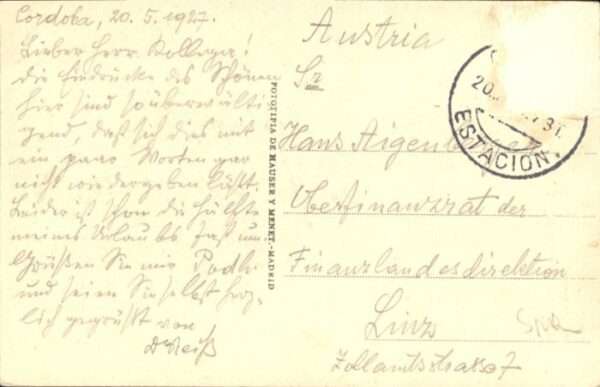 Cordoba, 20. 5. 1927.
Lieber Herr Kollega!
Die Eindrücke des Schönen
hier sind so überwälti
gend, daß sich dies mit
ein paar Worten gar
nicht wiedergeben läßt.
Leider ist schon die Hälfte
meines Urlaubs fast um.
Grüßen Sie mir
und seien Sie selbst herz-
lich gegrüßt von
DWeiß
FOTOTIPIA DE HAUSER Y MENET.-MADRID
Austria
Sr
Hans
Oberfinanzrat der
Finanzlandesdirektion
Linz
Zollamtstrasse 7
20
31.
ESTACION.